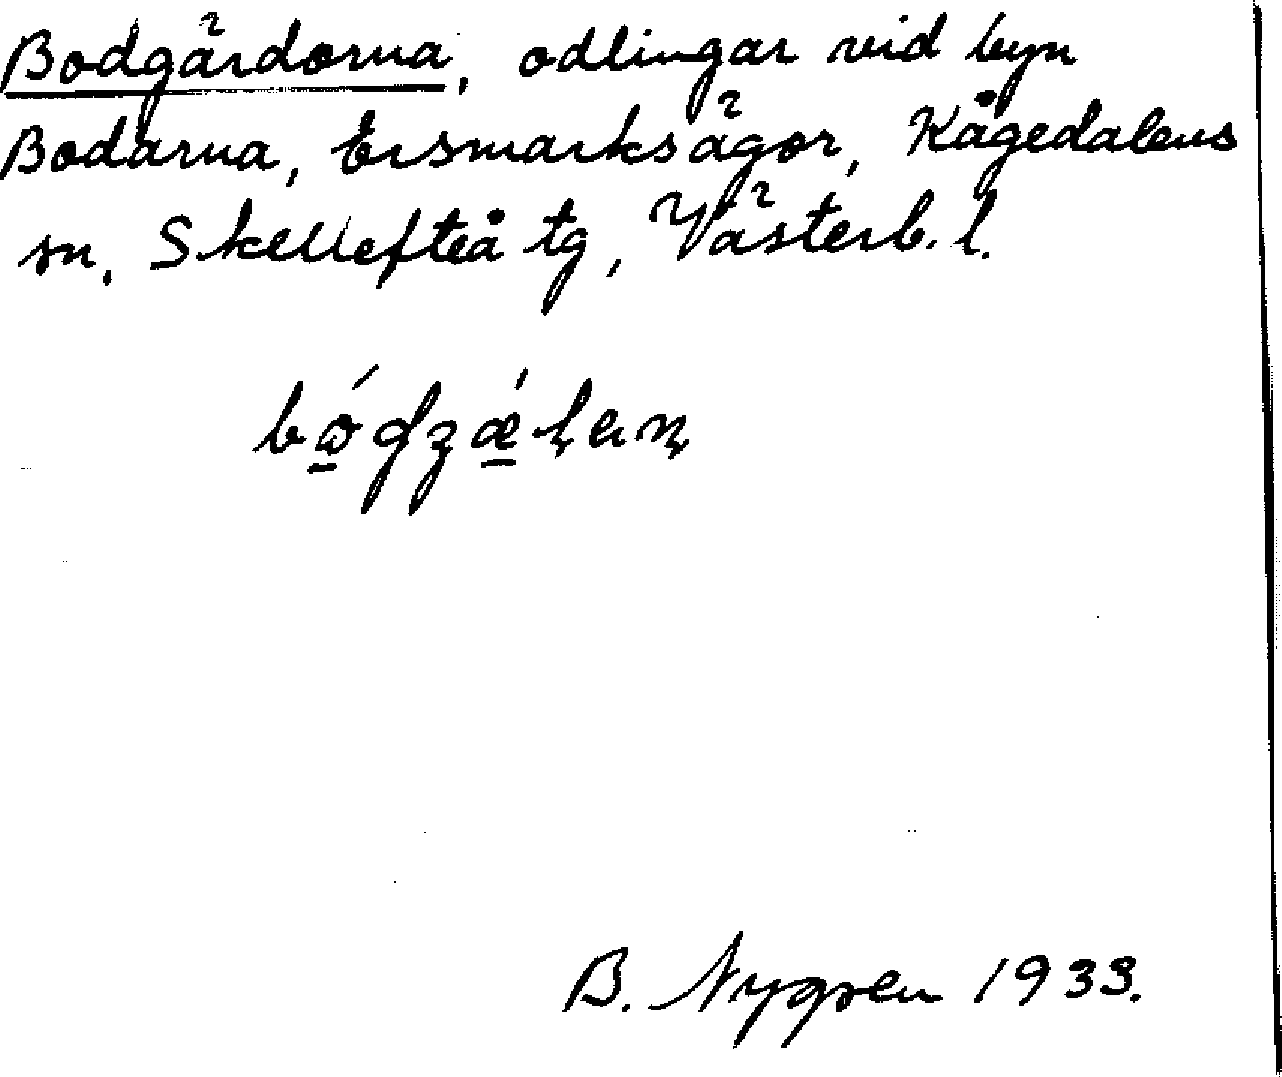 Bodgärdorna, odlingar vid byn
Bodarna, Ersmarksägor, Kågedalens
sn, Skellefteå tg, Västerb. l.
B. Nygren 1933.